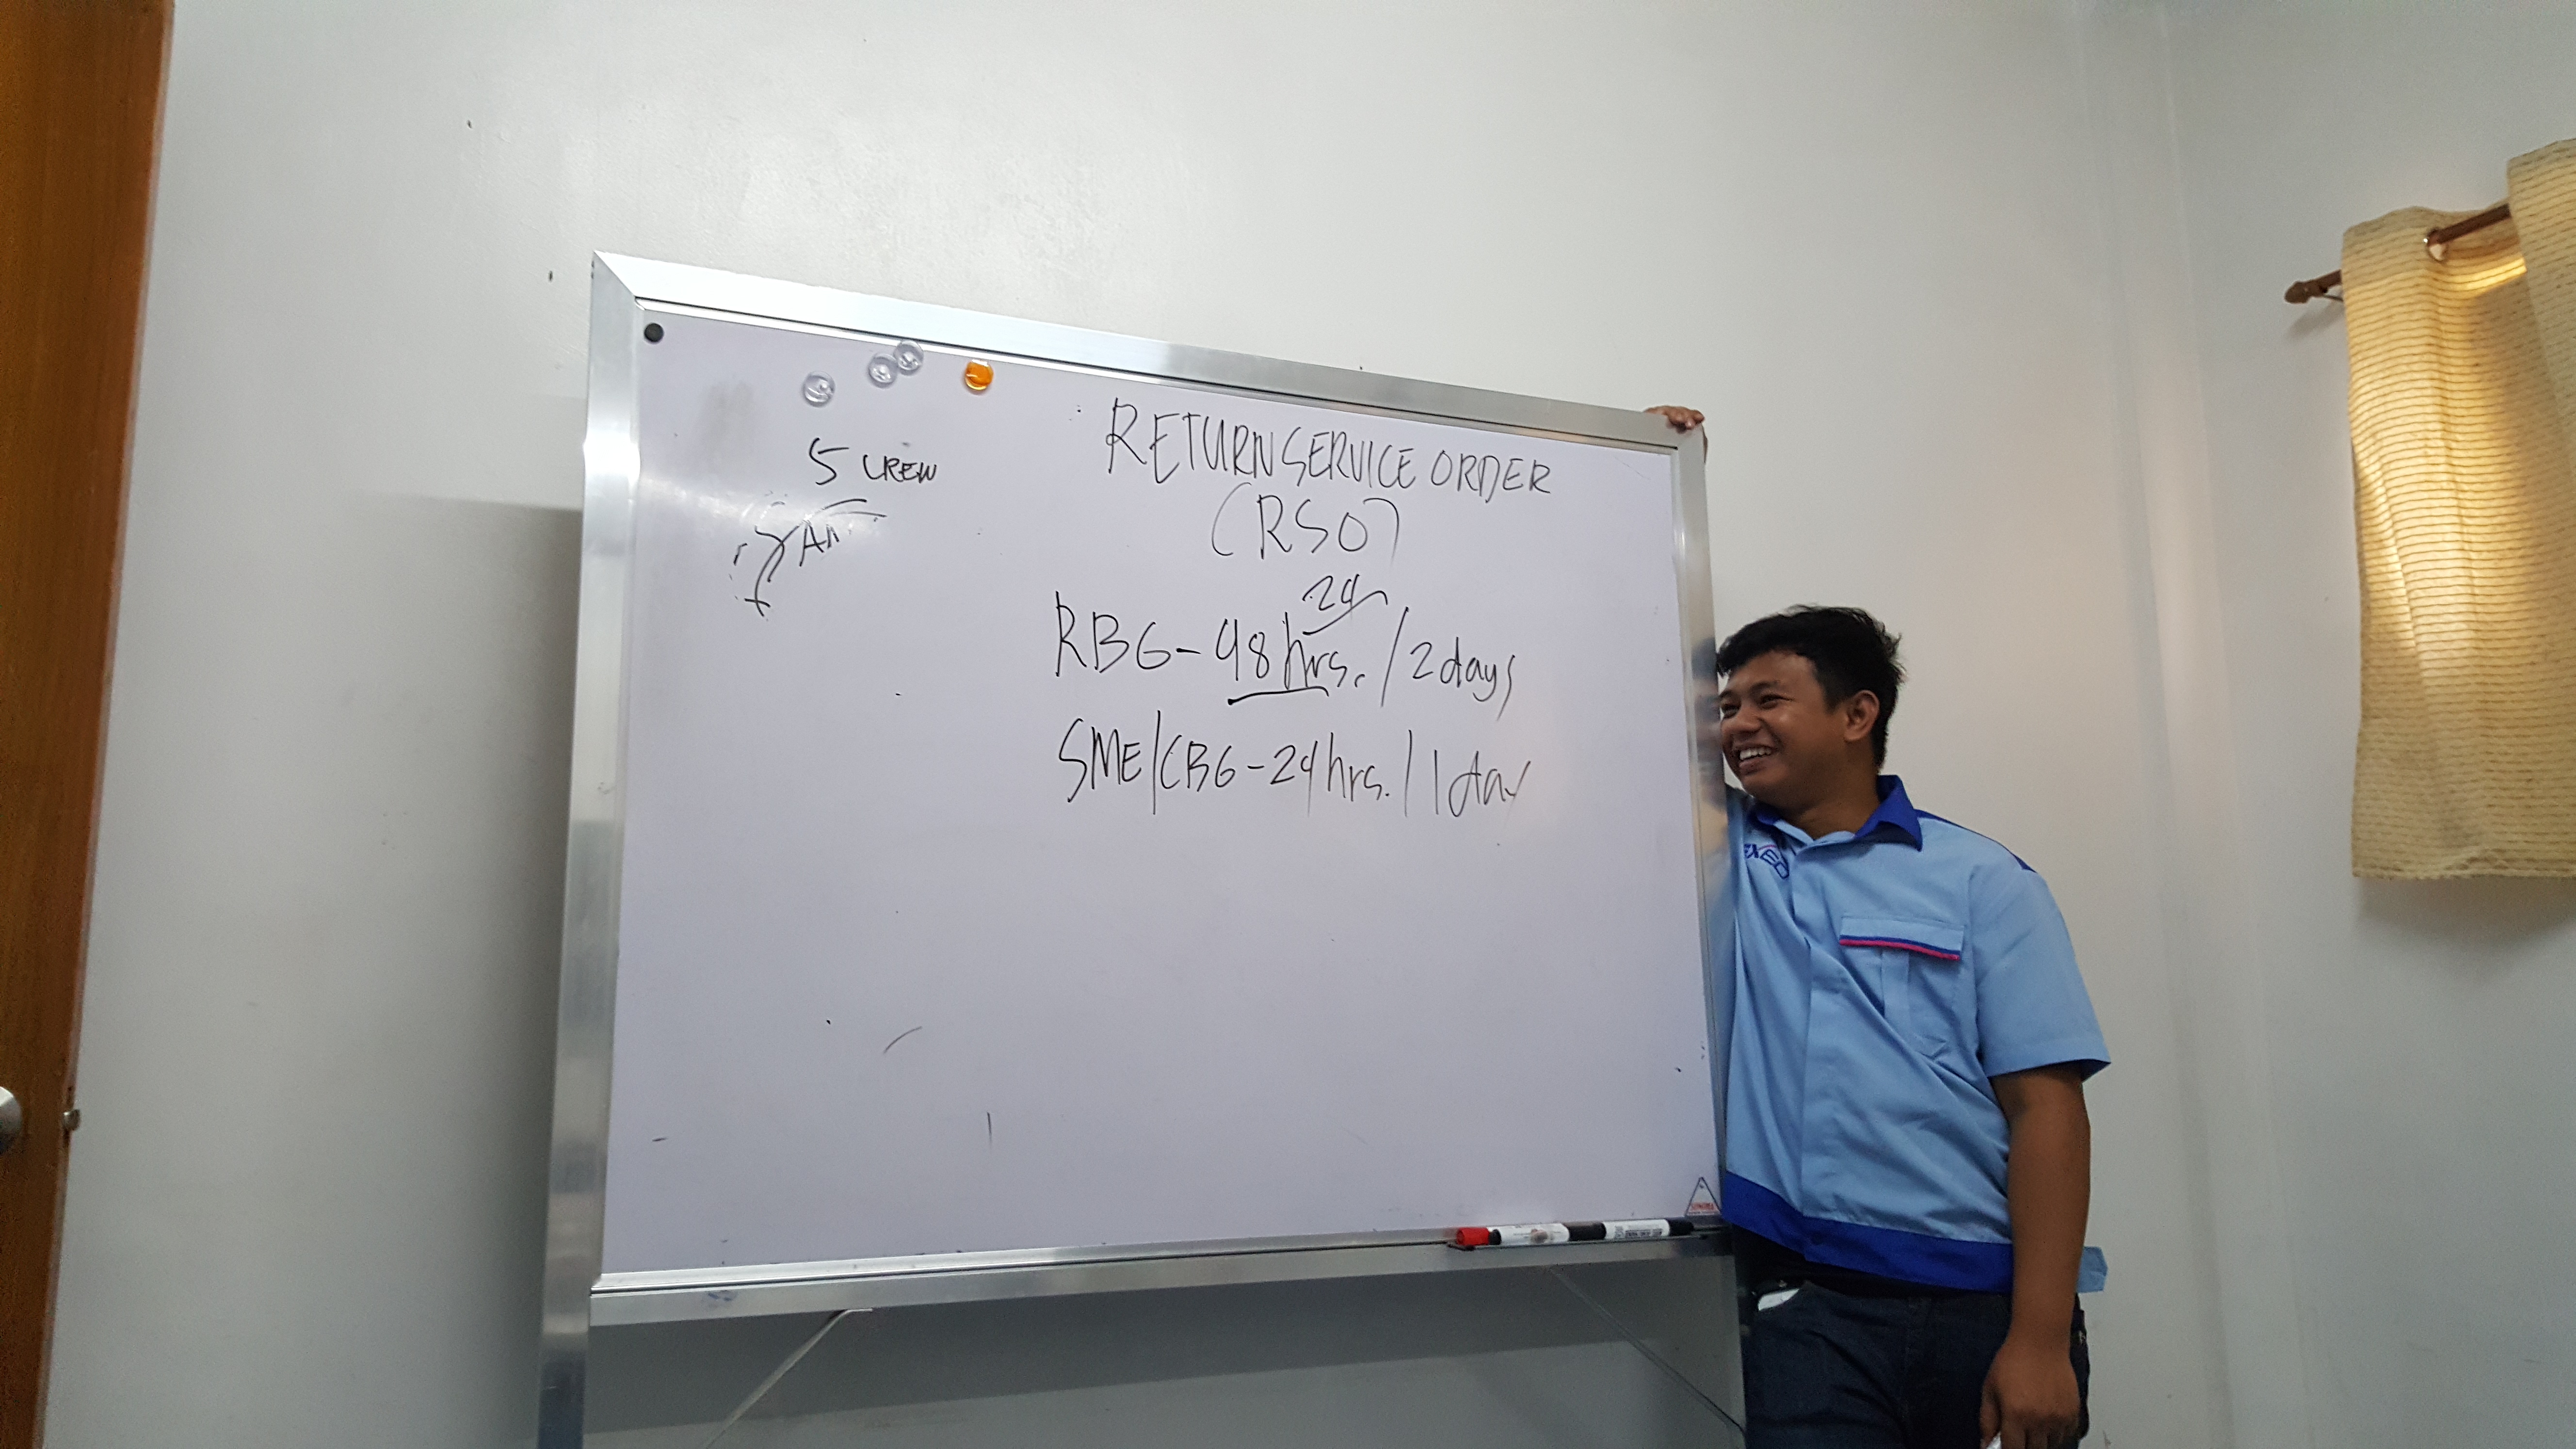 5 CREW
RETURN SERVICE ORDER
(RSO)
24
RBG - 48 hrs. / 2 days
SME/CBG - 24 hrs. / 1 day
EXEO